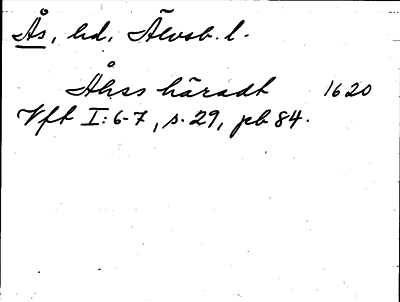 Ås, hd, Älvsb. l.
Åhss häradt 1620
Vft I:6-7, s. 29, pb 84.